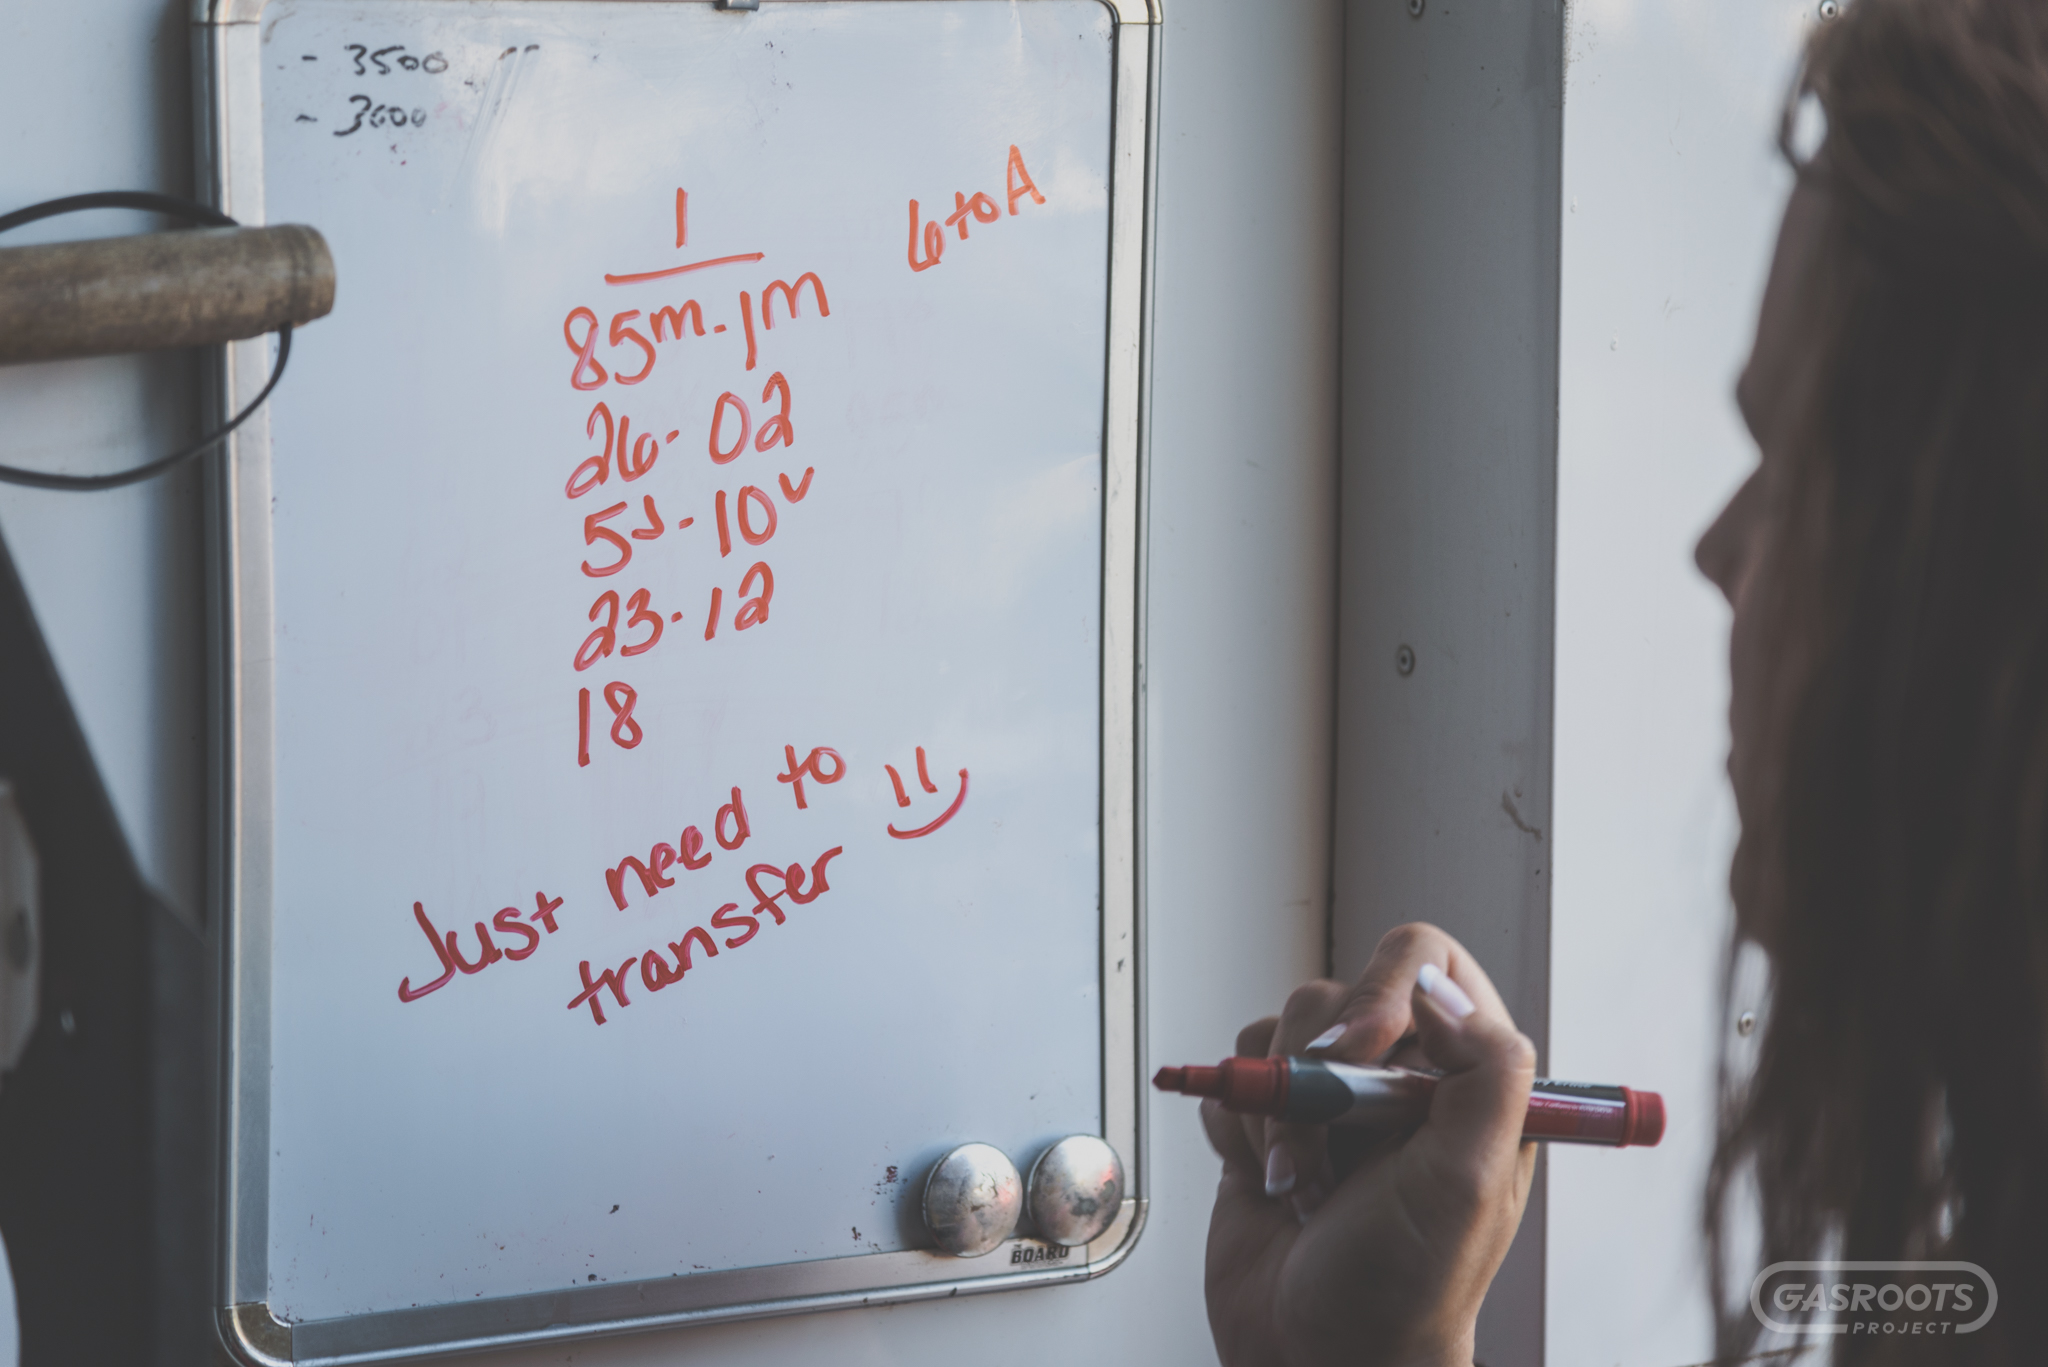 - 3500
- 3600
1
6 to A
85m - 1m
26 - 02
5J - 10v
23 - 12
18
Just need to
transfer
BOARD
GASROOTS
PROJECT